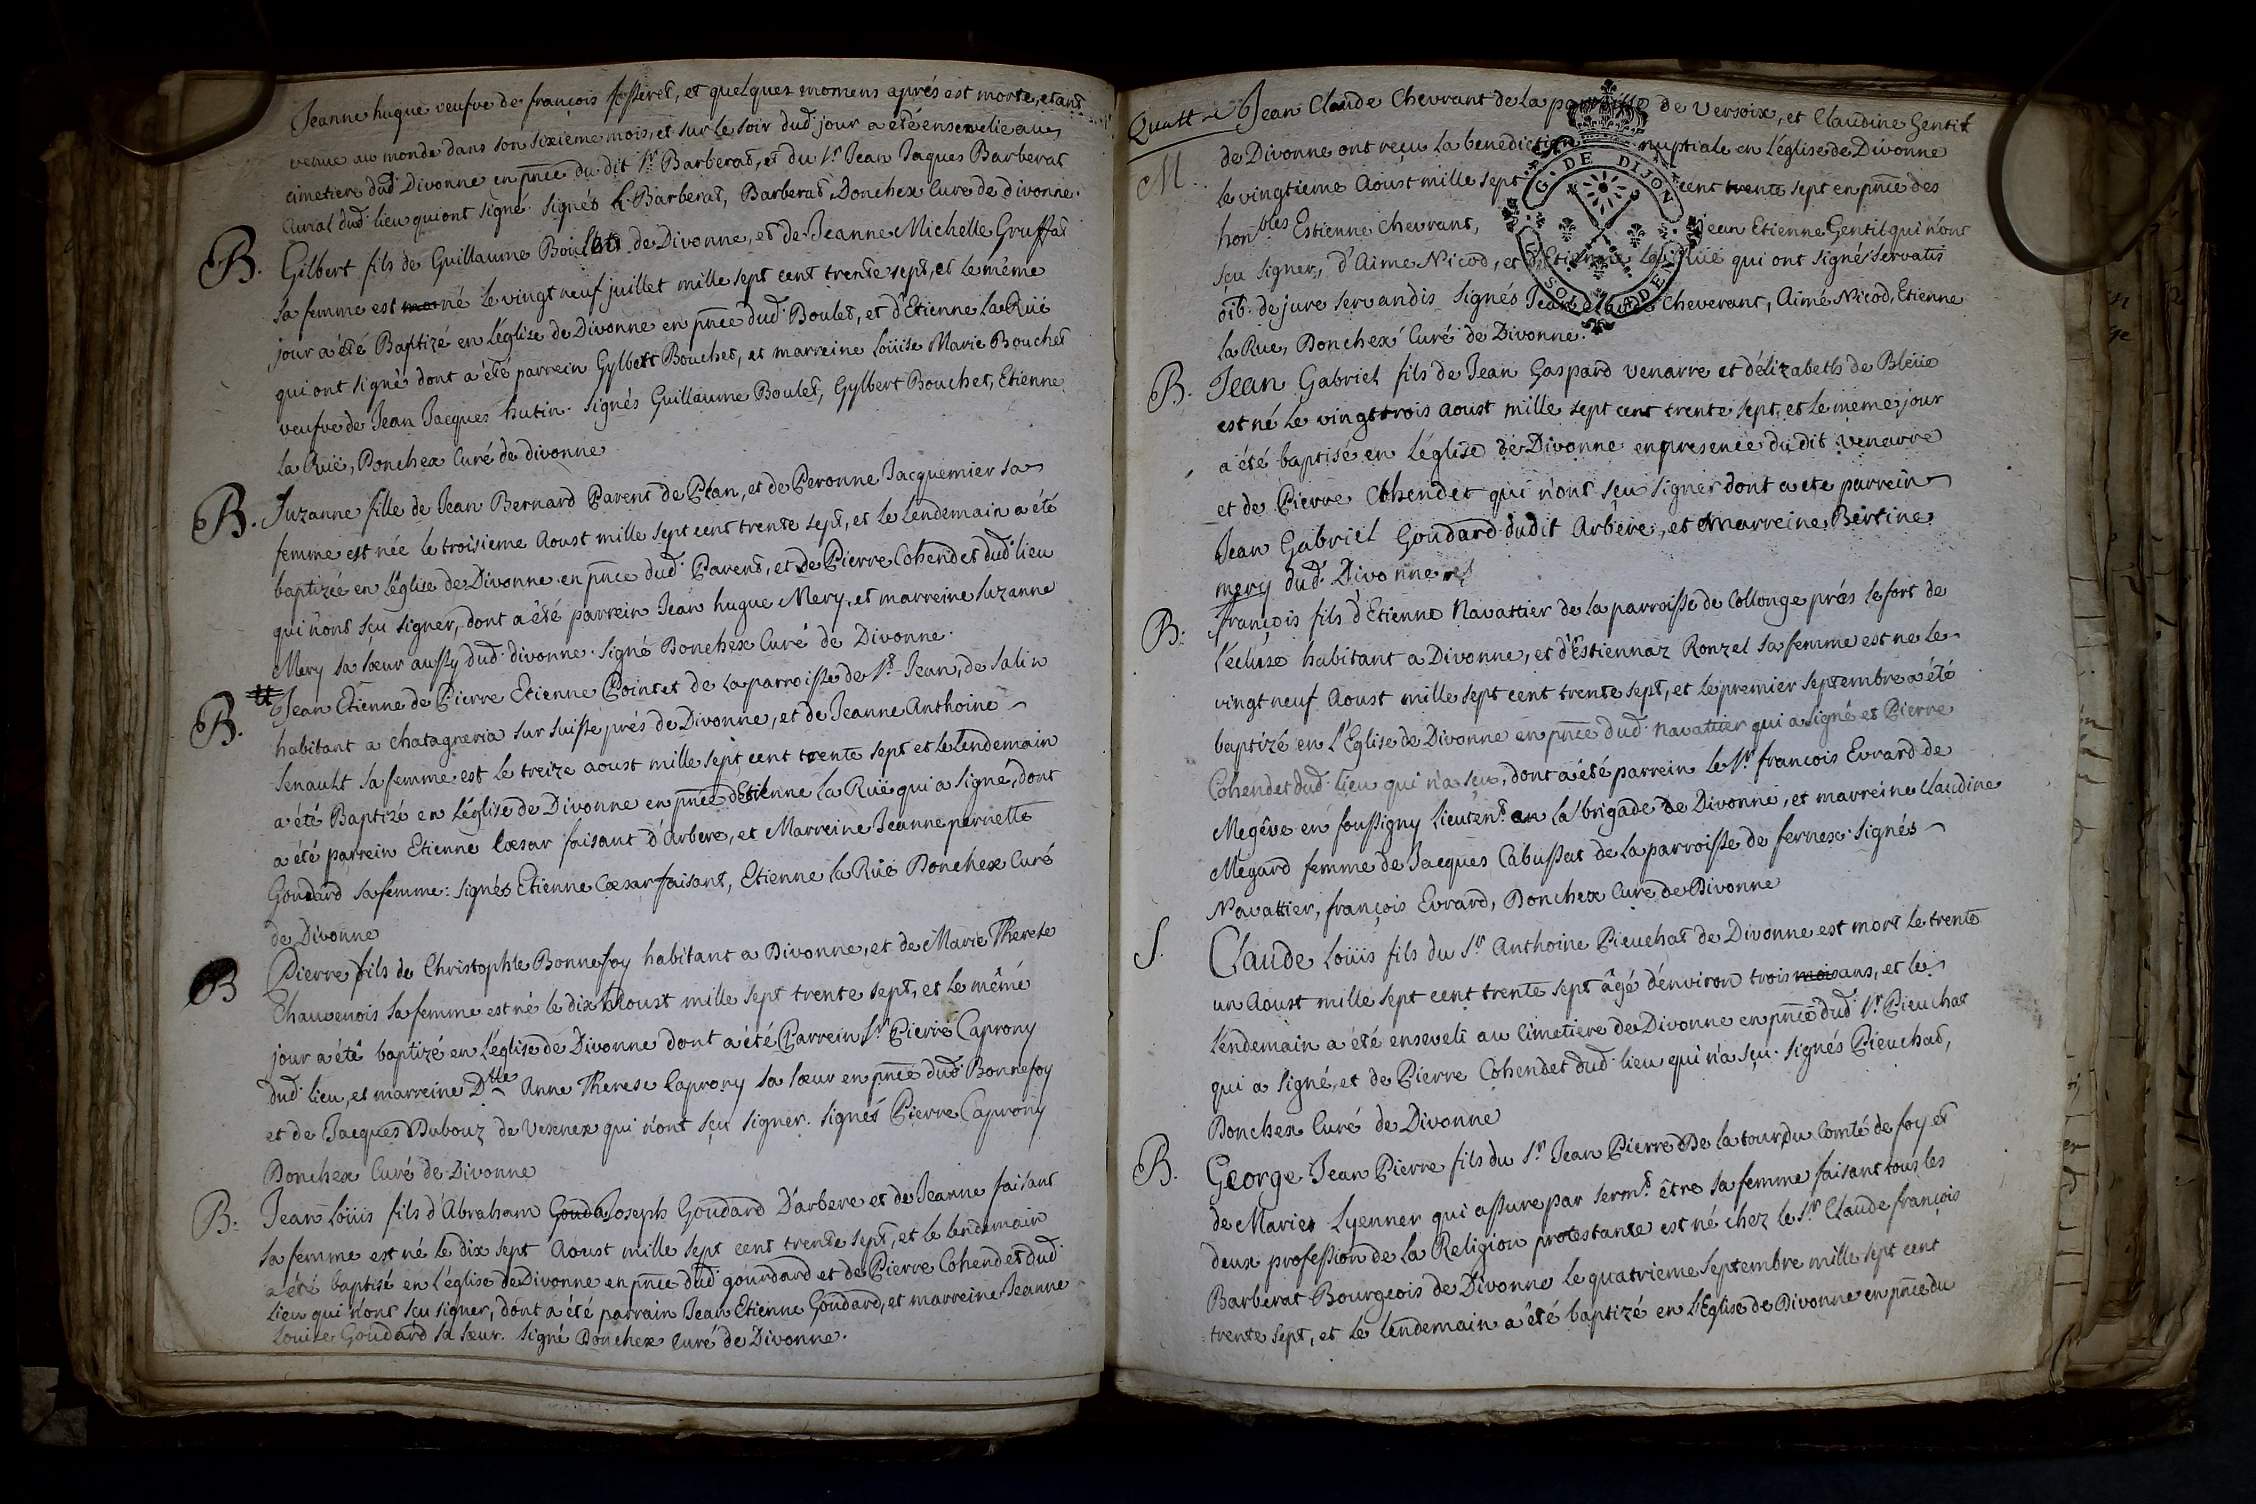 Jeanne hugue veufve de françois fosseret, et quelques momens aprés est morte, etant
venue au monde dans son sixieme mois, et sur le soir dud. jour a été ensevelie au
cimetiere dud. Divonne en pnce du dit Sr. Barberat, et du Sr. Jean Jaques Barberat
Curial dud. lieu qui ont signé. Signés Barberat, Barberat Donchex Curé de Divonne.
B. Gilbert fils de Guillaume Boulet de Divonne, et de Jeanne Michelle Gruffat
sa femme est né le vingt neuf juillet mille sept cent trente sept, et le même
jour a été Baptizé en l'église de Divonne en pnce dud. Boulet, et d'Etienne la Ruë
qui ont signés dont a été parrein Gylbert Bouchet, et marreine Loüise Marie Bouchet
veufve de Jean Jacques hutin. Signés Guillaume Boulet, Gylbert Bouchet, Etienne
la Ruë, Donchex Curé de divonne
B. Suzanne fille de Jean Bernard Parent de Plan, et de Peronne Jacquemier sa
femme est née le troisieme Aoust mille sept cent trente sept, et le lendemain a été
baptizée en l'église de Divonne en pnce dud. Parent, et de Pierre Cohendet dud. lieu
qui n'ont sçu signer, dont a été parrein Jean hugue Mery, et marreine Suzanne
Mery sa sœur aussy dud. divonne. Signé Donchex Curé de Divonne.
B. Jean Etienne de Pierre Etienne Pointet de la parroisse de St. Jean, de Salin
habitant a chatagneria sur Suisse prés de Divonne, et de Jeanne Anthoine
Senault sa femme est le treize aoust mille sept cent trente sept et le lendemain
a été Baptizé en l'église de Divonne en pnce d'Etienne la Ruë qui a signé, dont
a été parrein Etienne Cæsar faisant d'arbere, et Marreine Jeanne pernette
Goudard sa femme: signés Etienne Cæsar faisant, Etienne la Ruë Donchex Curé
de Divonne
B Pierre fils de Christophle Bonnefoy habitant a Divonne, et de Marie Therese
Chauvenois sa femme est né le dix Aoust mille sept trente sept, et le même
jour a été baptizé en l'église de Divonne dont a été Parrein Sr. Pierre Caprony
dud. lieu, et marreine Dlle Anne Therese Caprony sa sœur en pnce dud. Bonnefoy
et de Jacques Dubouz de Vesenex qui n'ont sçu signer. signés Pierre Caprony
Donchex Curé de Divonne
B. Jean Loüis fils d'Abraham Gouda Joseph Goudard D'arbere et de Jeanne faisant
sa femme est né le dix sept Aoust mille sept cent trente sept, et le lendemain
a été baptisé en l'église de Divonne en pnce dud. gourdard et de Pierre Cohendet dud.
lieu qui n'ont sçu signer, dont a été parrain Jean Etienne Goudard, et marreine Jeanne
Louise Goudard sa sœur. Signé Donchex curé de Divonne.
Quattre Jean Claude Chevrant de la parroisse de Versoix, et Claudine Gentil
M. de Divonne ont reçu la benediction nuptiale en l'église de Divonne
le vingtieme Aoust mille sept cent trente sept en pnce des
honbles Estienne Chevrant, Jean Etienne Gentil qui n'ont
sçu signer, d'Aimé Nicod, et d'Etienne la Ruë qui ont signés servatis
oib. de jure servandis signés Jean Claude Cheverant, Aimé Nicod, Etienne
la Rue, Donchex Curé de Divonne.
G. DE DIJON
SOLS
DEN
B. Jean Gabriel fils de Jean Gaspard venarre et d'élizabeth de Bléüe
est né le vingt trois aoust mille sept cent trente sept, et le même jour
a été baptisé en l'église de Divonne en presence du dit venarre
et de Pierre Cohendet qui n'ont sçu signer dont a eté parrein
Jean Gabriel Goudard dudit Arbere, et Marreine Bertine
mery dud. Divonne
B. françois fils d'Etienne Navattier de la parroisse de Collonge prés le fort de
l'ecluse habitant a Divonne, et d'Estiennaz Ronzel sa femme est né le
vingt neuf Aoust mille sept cent trente sept, et le premier septembre a été
baptizé en l'Eglise de Divonne en pnce dud. Navattier qui a signé et Pierre
Cohendet dud. lieu qui n'a sçu, dont a été parrein le Sr. françois Evrard de
Megêve en foussigny lieutent. en la brigade de Divonne, et marreine Claudine
Megard femme de Jacques Cabussat de la parroisse de fernex. signés
Navattier, françois Evrard, Donchex Curé de Divonne
S. Claude Loüis fils du Sr. Anthoine Pieuchat de Divonne est mort le trente
un Aoust mille sept cent trente sept âgé d'environ trois mois ans, et le
lendemain a été enseveli au Cimetiere de Divonne en pnce dud. Sr. Pieuchat
qui a signé, et de Pierre Cohendet dud. lieu qui n'a sçu. signés Pieuchat,
Donchex Curé de Divonne
B. George Jean Pierre fils du Sr. Jean Pierre De la tour, du Comté de foy et
de Marie Lyenner qui assure par serm.t être sa femme faisant tous les
deux profession de la Religion protestante est né chez le Sr. Claude françois
Barberat Bourgeois de Divonne le quatrieme Septembre mille sept cent
trente sept, et le lendemain a été baptizé en l'Eglise de Divonne en pnce du